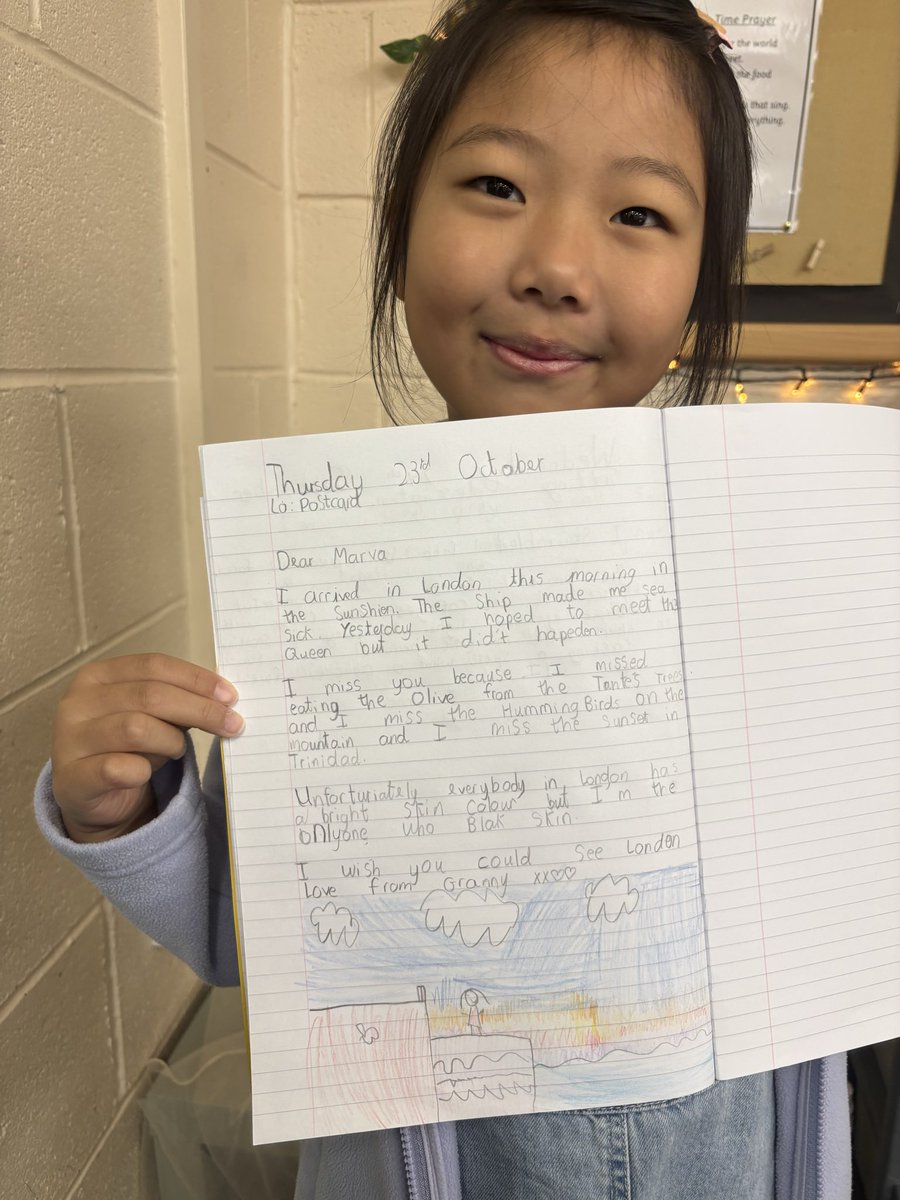 Time Prayer
the world
the food
that sing.
Thursday 23rd October
Lo: Postcard
Dear Marva
I arrived in London this morning in
the Sunshien. The Ship made me sea
Sick. Yesterday I hoped to meet the
Queen but it did't hapeden.
I miss you because I missed
eating the Olive from the Tantes Trees
and I miss the Humming Birds on the
mountain and I miss the Sunset in
Trinidad.
Unforturiately everybody in London has
a bright Skin Colour but I'm the
onlyone who Blak Skin.
I wish you could See London
Love from Granny xx♡♡